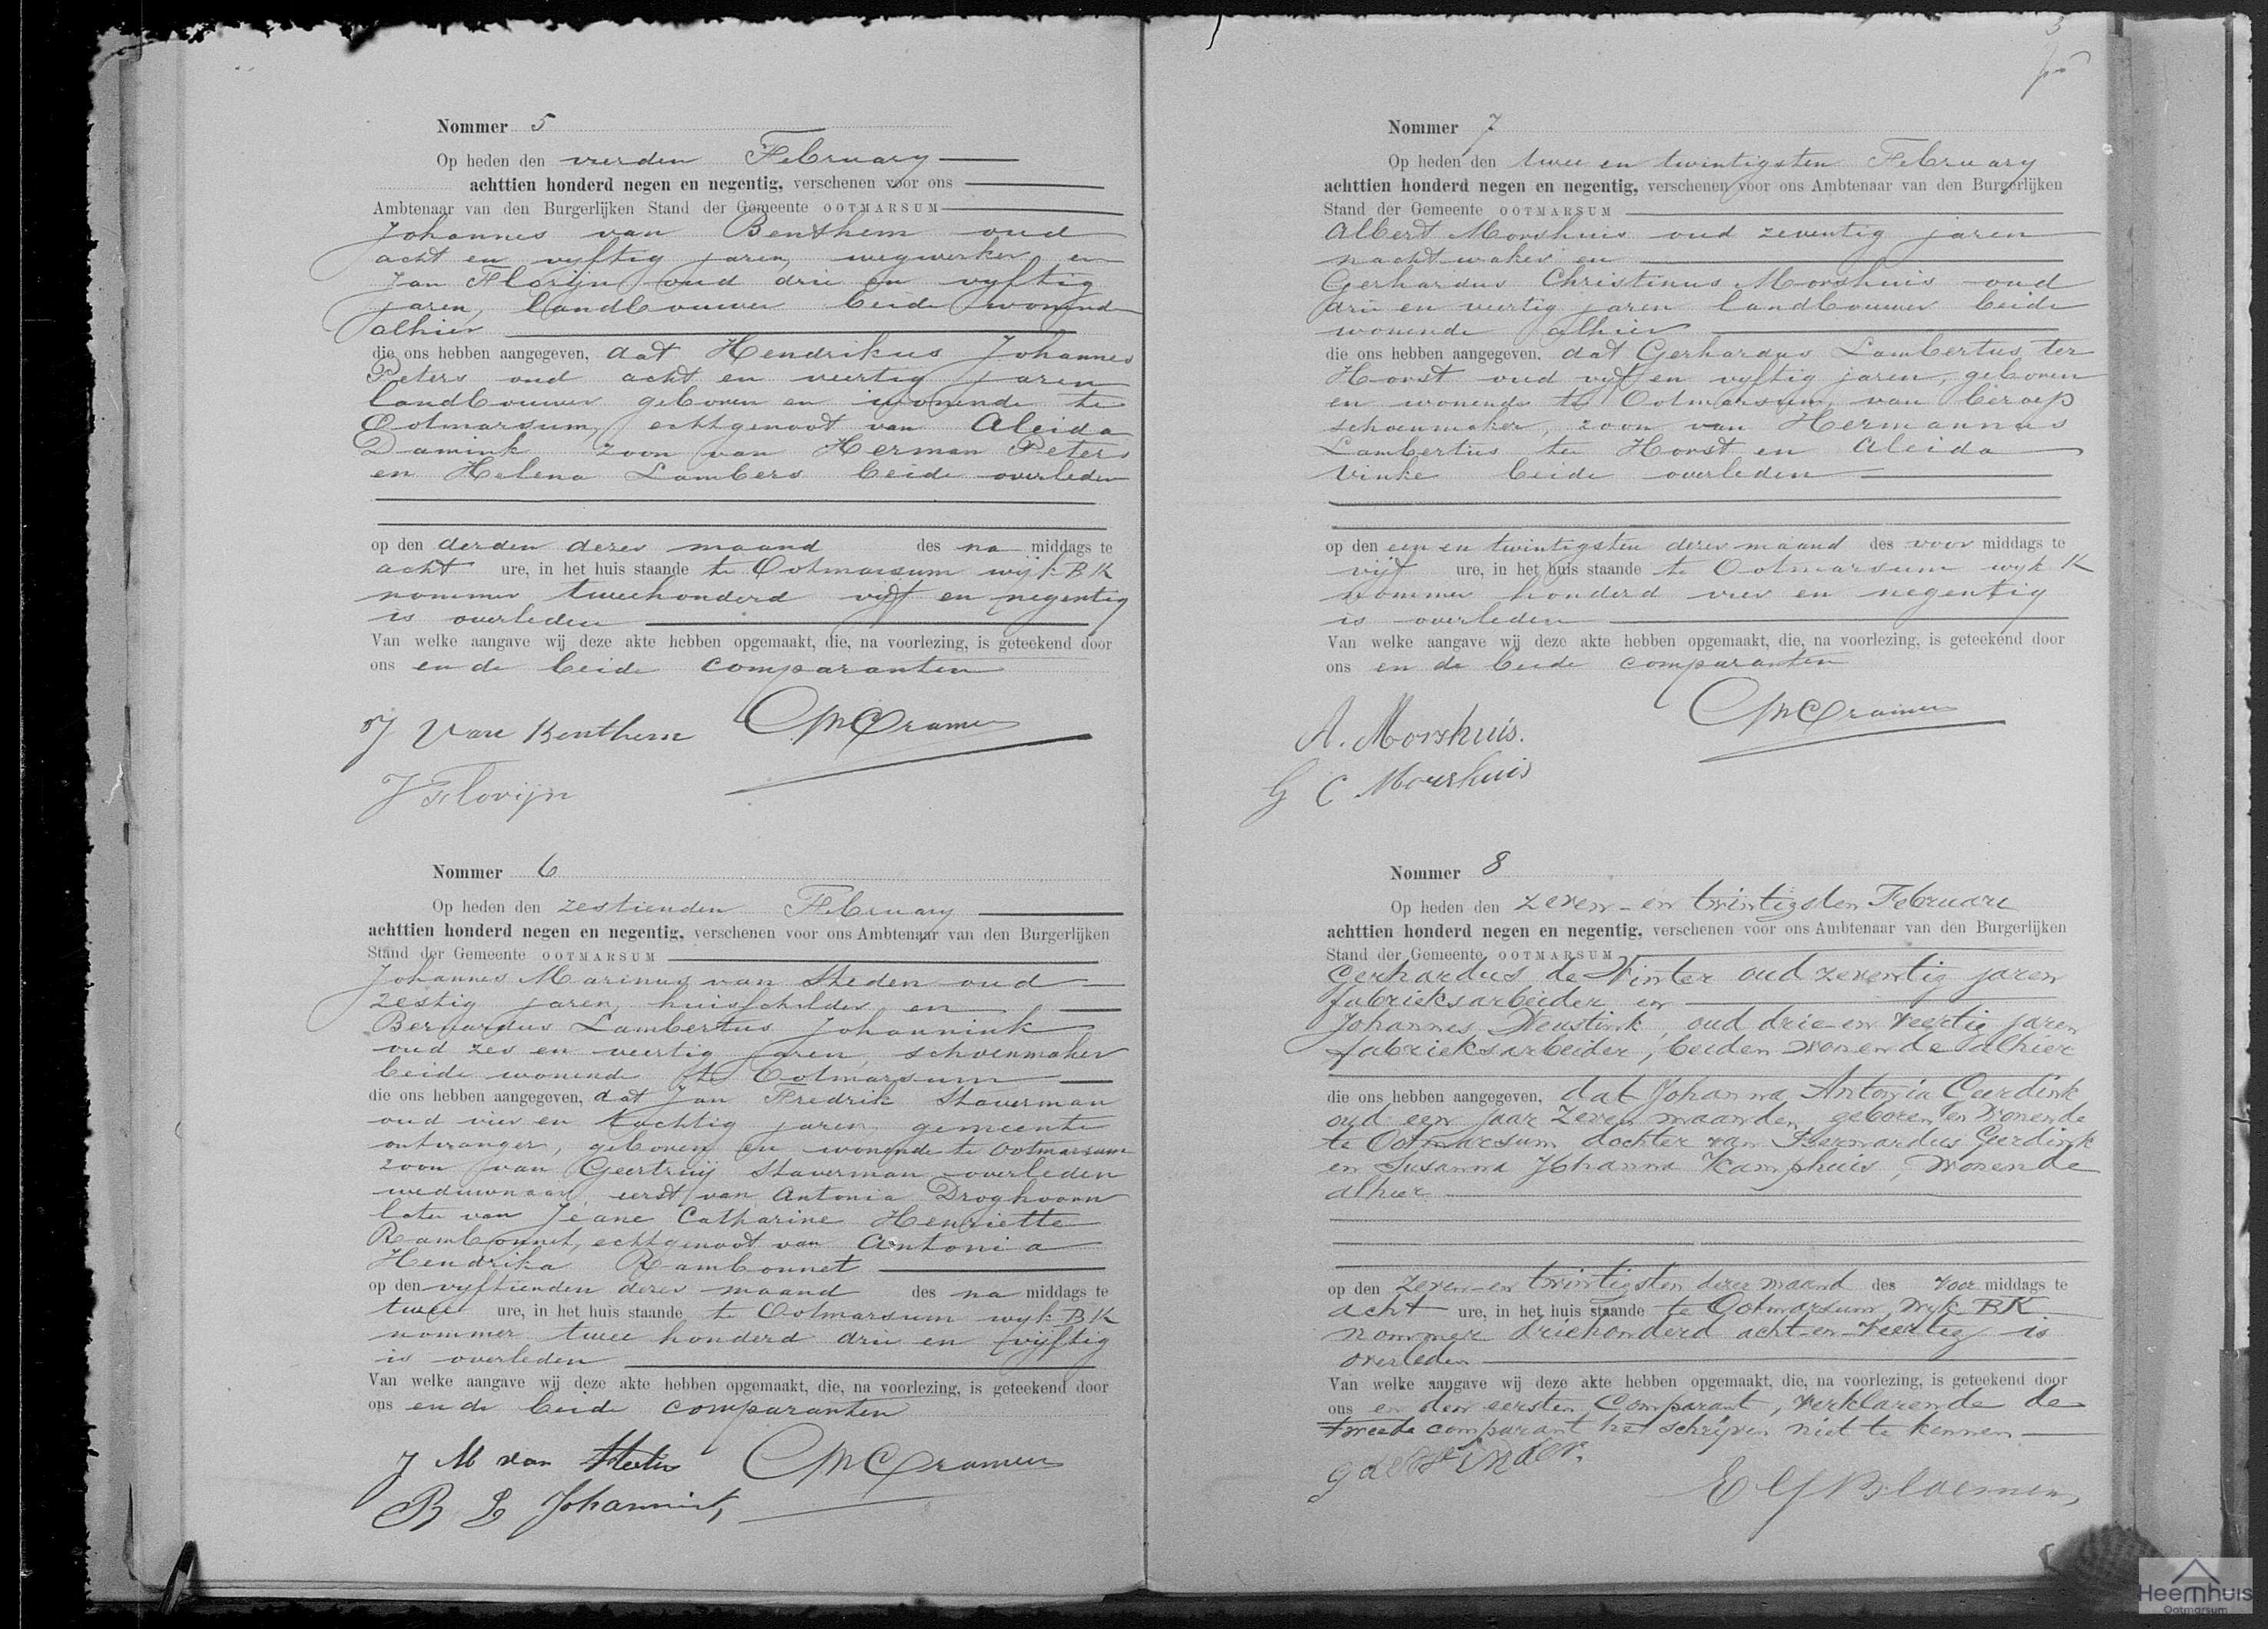 Nommer 5
Op heden den vierden February
achttien honderd negen en negentig, verschenen voor ons
Ambtenaar van den Burgerlijken Stand der Gemeente OOTMARSUM
Johannes van Benthem oud
acht en vyftig jaren, wegwerker en
Jan Florijn oud drie en vyftig
jaren, landbouwer beide wonende
alhier
die ons hebben aangegeven, dat Hendrikus Johannes
Peters oud acht en veertig jaren
landbouwer geboren en wonende te
Ootmarsum, echtgenoot van Aleida
Damink zoon van Herman Peters
en Helena Lambers beide overleden
op den derden dezer maand des na middags te
acht ure, in het huis staande te Ootmarsum wijk BK
nommer tweehonderd vyf en negentig
is overleden
Van welke aangave wij deze akte hebben opgemaakt, die, na voorlezing, is geteekend door
ons en de beide comparanten
J van Benthem CMCramer
J Florijn
Nommer 6
Op heden den zestienden February
achttien honderd negen en negentig, verschenen voor ons Ambtenaar van den Burgerlijken
Stand der Gemeente OOTMARSUM
Johannes Marinus van Steden oud
zestig jaren, huisschilder en
Bernardus Lambertus Johannink
oud zes en veertig jaren, schoenmaker
beide wonende te Ootmarsum
die ons hebben aangegeven, dat Jan Fredrik Staverman
oud vier en tachtig jaren, gemeente
ontvanger, geboren en wonende te Ootmarsum
zoon van Geertruij Staverman overleden
weduwnaar eerst van Antonia Droghoorn
later van Jeane Catharine Henriette
Rambonnet, echtgenoot van Antonia
Hendrika Rambonnet
op den vyftienden dezer maand des na middags te
twee ure, in het huis staande te Ootmarsum wyk BK
nommer twee honderd drie en vijftig
is overleden
Van welke aangave wij deze akte hebben opgemaakt, die, na voorlezing, is geteekend door
ons en de beide comparanten
J M van Steden CMCramer
B L Johannink
Nommer 7
Op heden den twee en twintigsten February
achttien honderd negen en negentig, verschenen voor ons Ambtenaar van den Burgerlijken
Stand der Gemeente OOTMARSUM
Albert Morshuis oud zeventig jaren
nachtwaker en
Gerhardus Christinus Morshuis oud
drie en veertig jaren landbouwer beide
wonende alhier
die ons hebben aangegeven, dat Gerhardus Lambertus ter
Horst oud vyf en vyftig jaren, geboren
en wonende te Ootmarsum, van beroep
schoenmaker, zoon van Hermannus
Lambertus ter Horst en Aleida
Vinke beide overleden
op den een en twintigsten dezer maand des voor middags te
vijf ure, in het huis staande te Ootmarsum wyk K
nommer honderd vier en negentig
is overleden
Van welke aangave wij deze akte hebben opgemaakt, die, na voorlezing, is geteekend door
ons en de beide comparanten
A. Morshuis. CMCramer
G C Morshuis
Nommer 8
Op heden den zeven-en twintigsten Februari
achttien honderd negen en negentig, verschenen voor ons Ambtenaar van den Burgerlijken
Stand der Gemeente OOTMARSUM
Gerhardus de Winter oud zeventig jaren
fabrieksarbeider en
Johannes Neustink, oud drie-en veertig jaren
fabrieksarbeider, beiden wonende alhier
die ons hebben aangegeven, dat Johanna Antonia Geerdink
oud een jaar zeven maanden geboren en wonende
te Ootmarsum dochter van Bernardus Geerdink
en Susanna Johanna Kamphuis, wonende
alhier
op den zeven-en twintigsten dezer maand des voor middags te
acht ure, in het huis staande te Ootmarsum, Wyk BK
nommer driehonderd acht-en-veertig is
overleden
Van welke aangave wij deze akte hebben opgemaakt, die, na voorlezing, is geteekend door
ons en den eersten Comparant, verklarende de
tweede comparant het schrijven niet te kennen
g de Winder.
Bloemen
Heemhuis
Ootmarsum